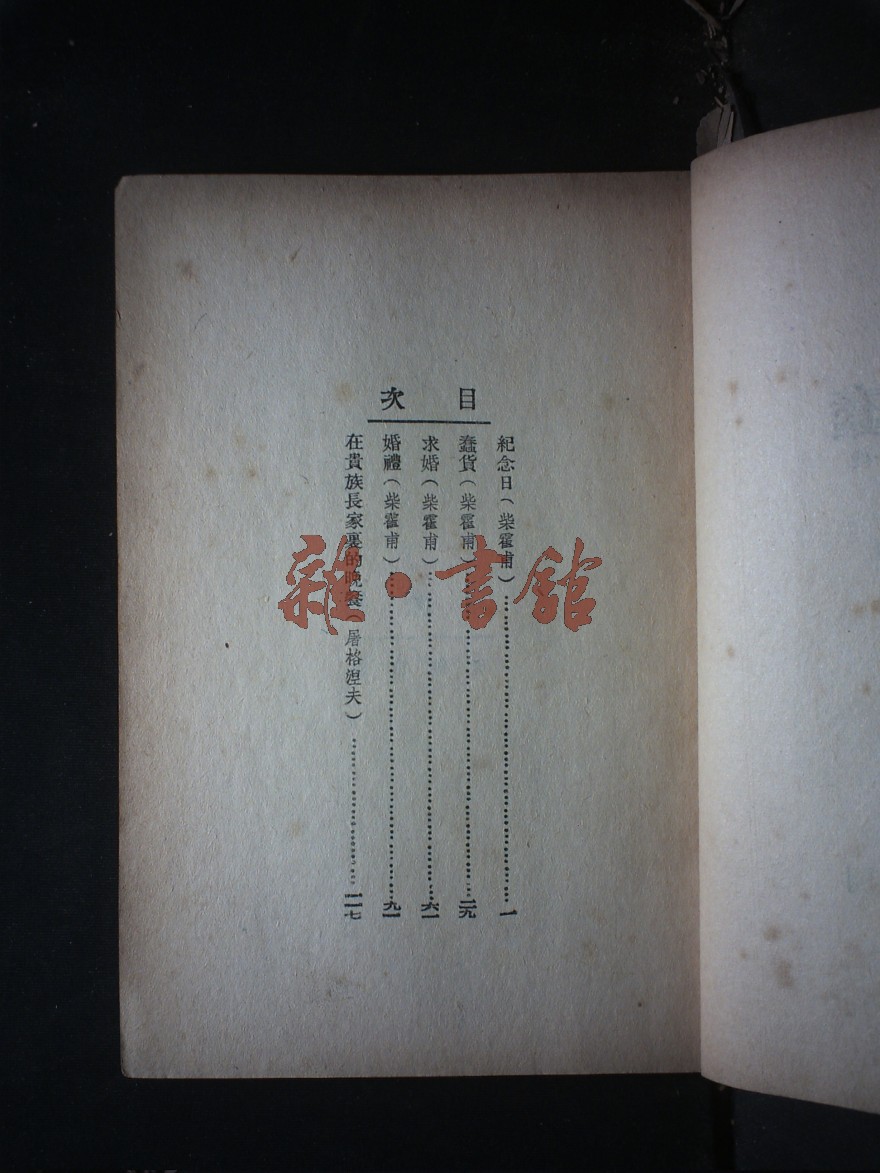 目次
紀念日(柴霍甫)……一
蠢貨(柴霍甫)……二九
求婚(柴霍甫)……六一
婚禮(柴霍甫)……九一
在貴族長家裏的晚餐(屠格涅夫)……一一七
雜·書館